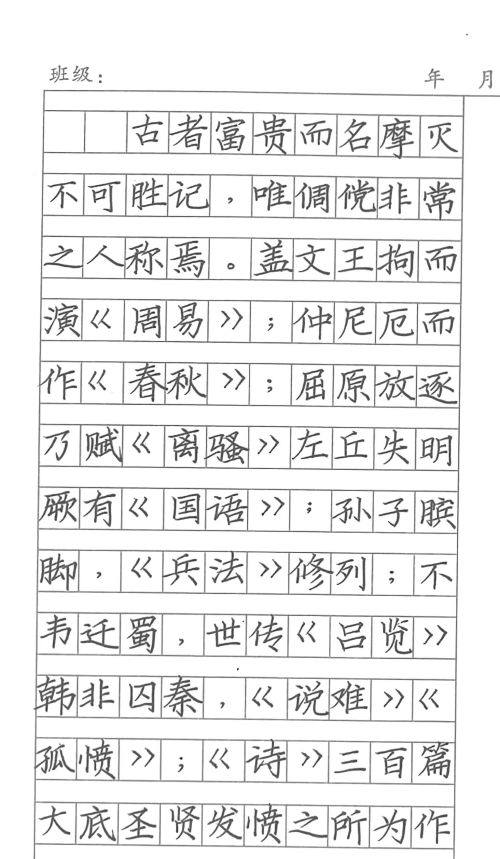 班级： 年 月
古者富贵而名摩灭
不可胜记，唯倜傥非常
之人称焉。盖文王拘而
演《周易》；仲尼厄而
作《春秋》；屈原放逐
乃赋《离骚》左丘失明
厥有《国语》；孙子膑
脚，《兵法》修列；不
韦迁蜀，世传《吕览》
韩非囚秦，《说难》《
孤愤》；《诗》三百篇
大底圣贤发愤之所为作